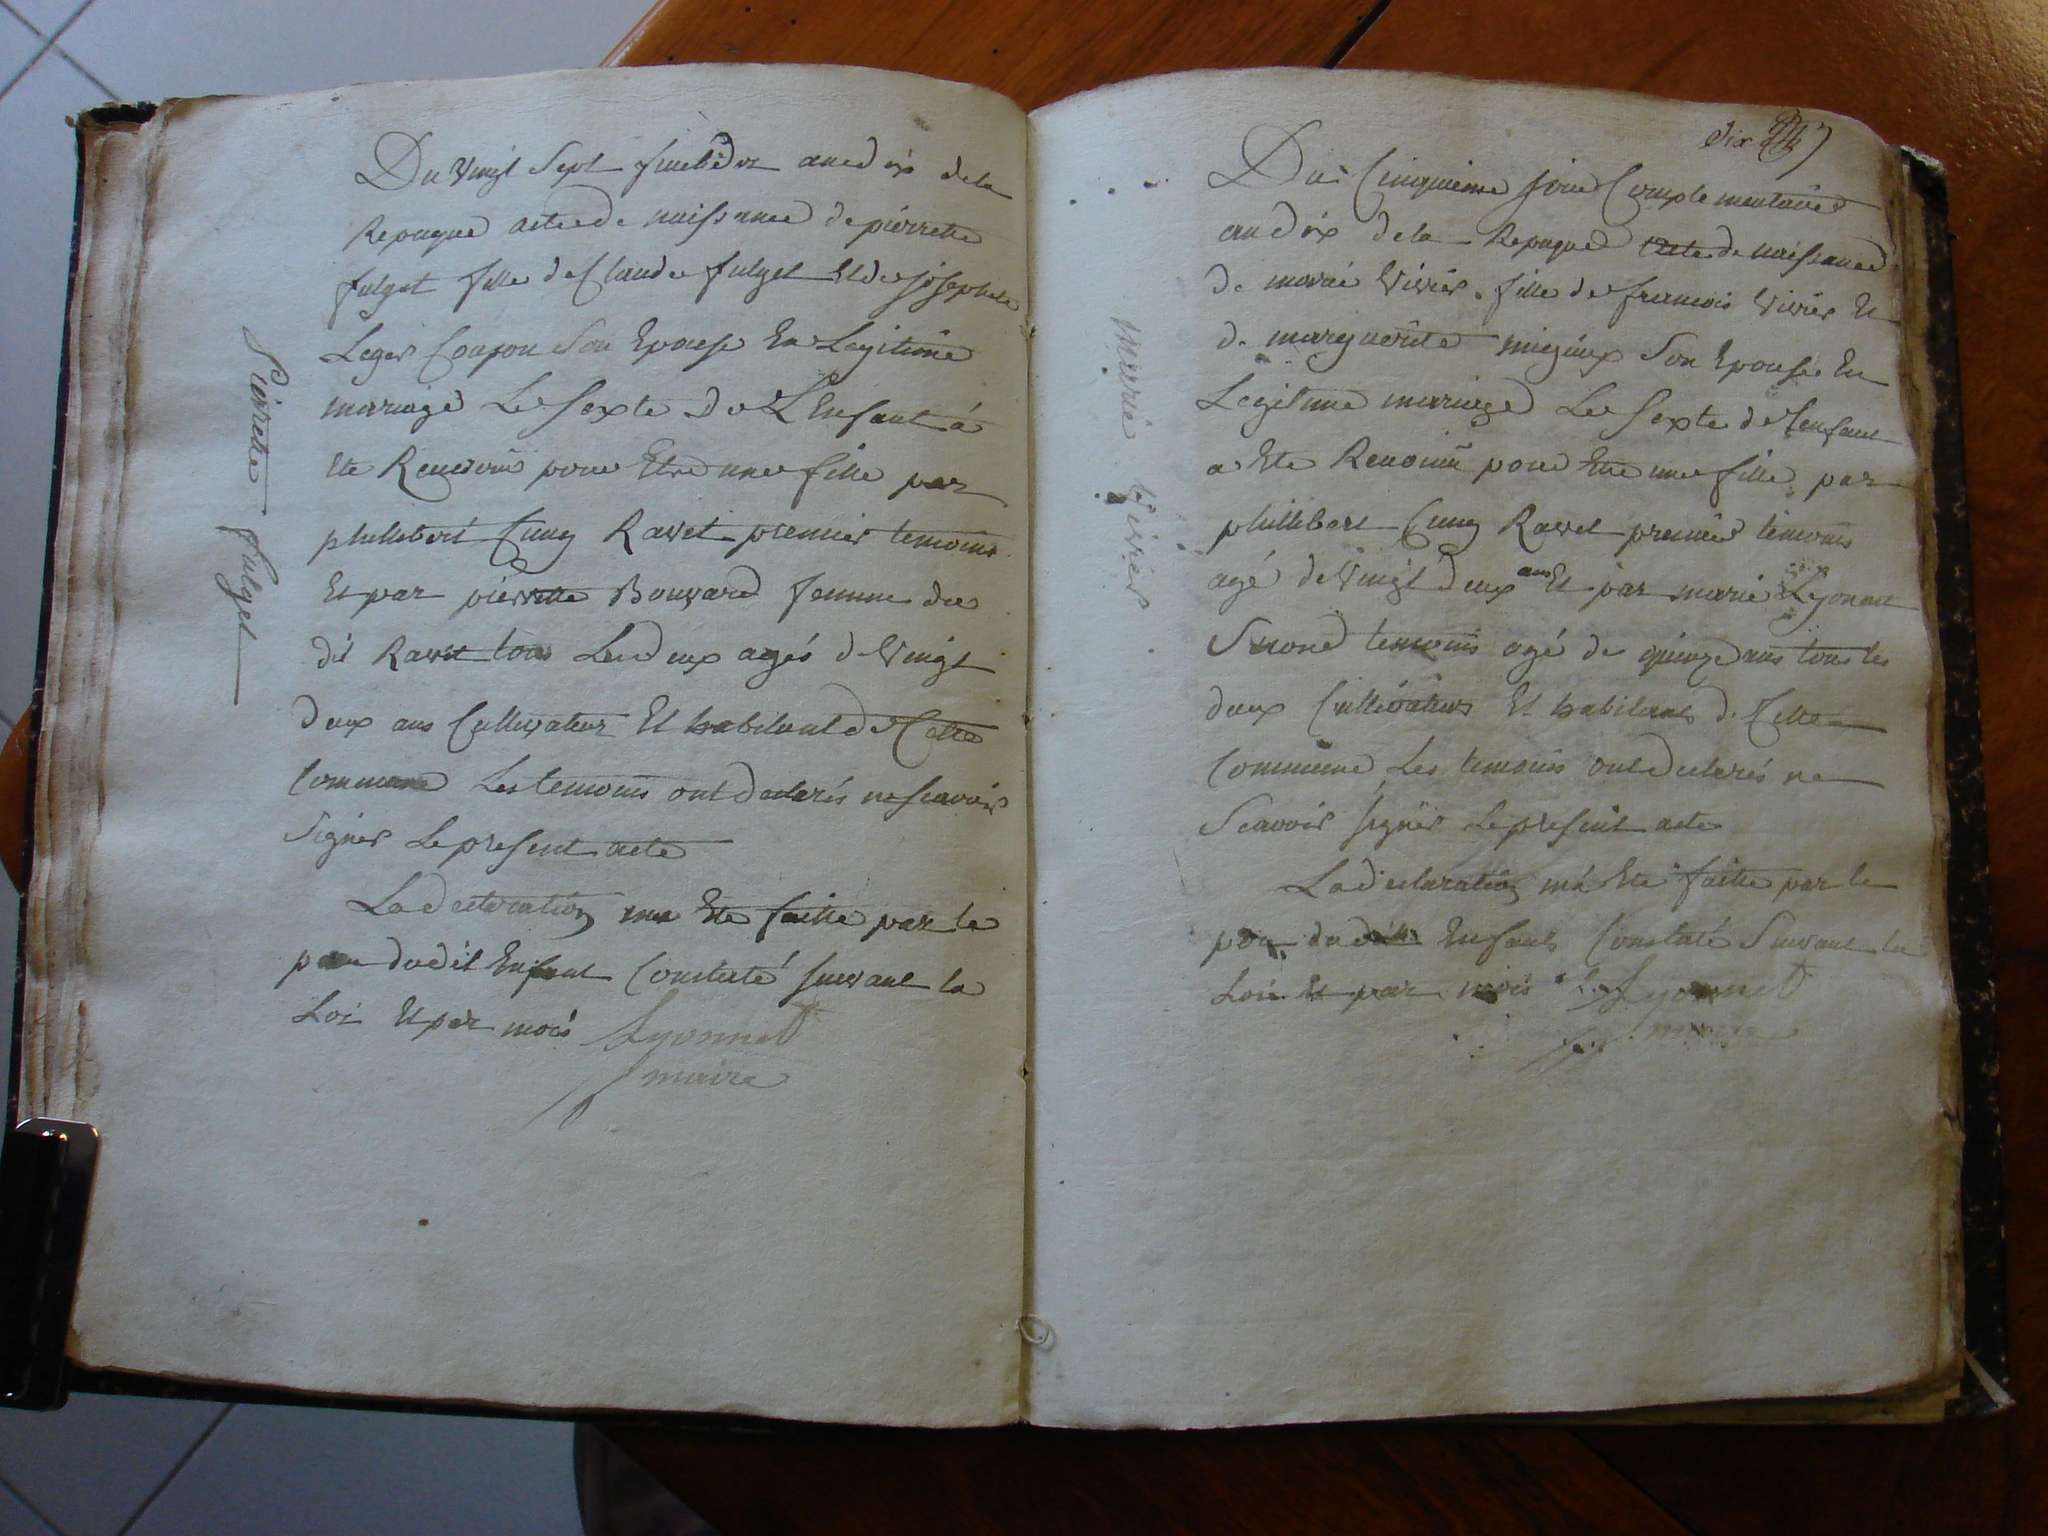 Du vingt Sept fructidor an dix de la
Repuque acte de naissance de pierrette
fulget fille de Claude fulget Et de josephete
Leger Coupou Son Epouse En Legitime
mariage Le Sexte de L'Enfant á
Ete Renconü pour Etre une fille par
phillibert Cuny Ravet premier temoins
Et par pierrette Bouvard femme du
dit Ravet tous Les deux agés de vingt
deux ans Cultivateur Et habitant de Cette
Commune Les temoins ont declarés ne scavoir
Signer Le present acte
La declaration ma Ete faitte par le
pere dudit Enfant Constaté suivant la
Loi Et par mois Lyonnet
maire
Pierrette fulget
dix
Du Cinquieme jour Complementaires
an dix de la Repuque acte de naissance
de marie Vivier fille de francois Vivier Et
de marguerite migieux Son Epouse En
Legitime mariage Le Sexte de l'enfant
a Ete Renconü pour Etre une fille par
phillibert Cuny Ravet premier temoins
agé de vingt deux ans Et par marie Lyonnet
Second temoins agé de quinze ans tous les
deux Cultivateurs Et habitants de Cette
Commune Les temoins ont declarés ne
Scavoir signer Le present acte
La declaration má Eté faitte par le
pere dudit Enfant Constaté Suivant la
Loi Et par mois Lyonnet
maire
marie Vivier